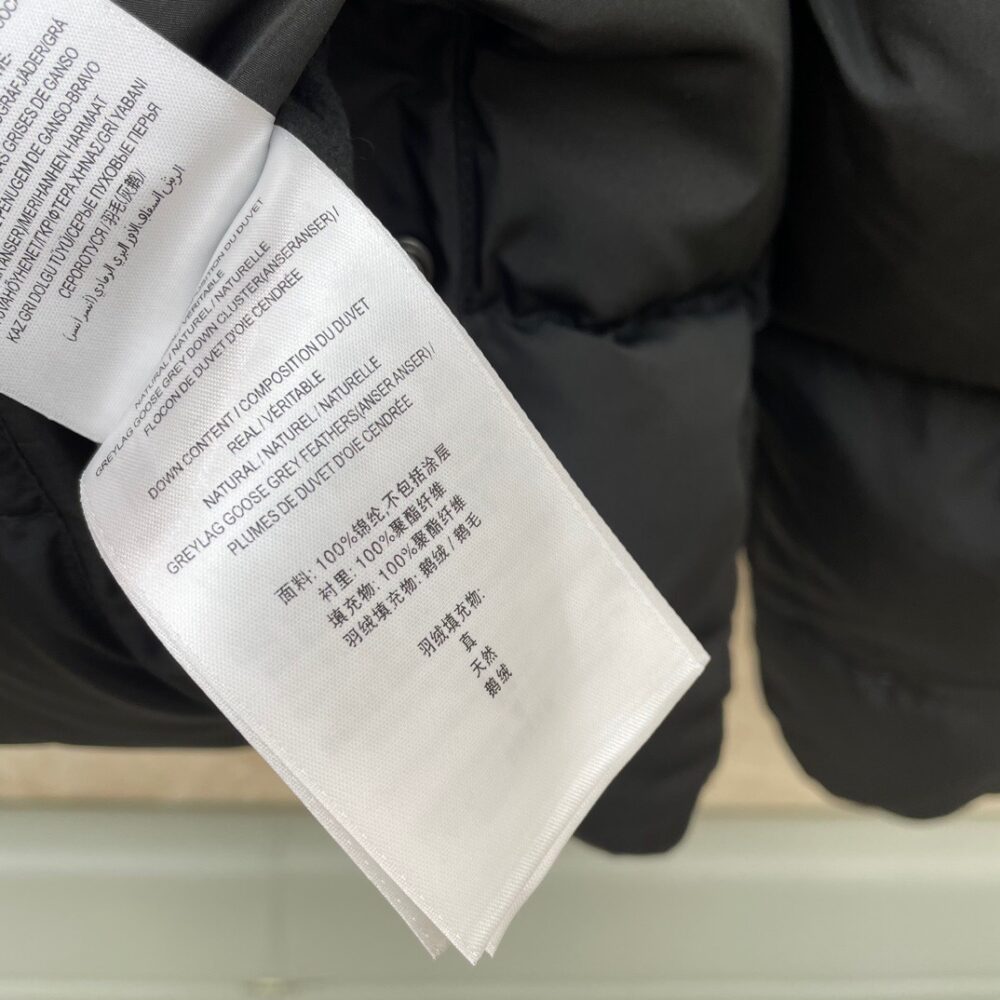 GRAF JÄDER/GRÅ
AS GRISES DE GANSO
PENUGEM DE GANSO-BRAVO
ANSER/MERIHANHEN HARMAAT
UVAHÖYHENET/ΚΡΙΦΤΕΡΑ ΧΗΝΑΣ/GRİ YABANİ
KAZ GRİ DOLGU TÜYÜ/СЕРЫЕ ПУХОВЫЕ ПЕРЬЯ
СЕРОГО ГУСЯ
NATURAL / NATUREL / NATURELLE
GREYLAG GOOSE GREY DOWN CLUSTER(ANSERANSER) /
FLOCON DE DUVET D'OIE CENDRÉE
DOWN CONTENT / COMPOSITION DU DUVET
REAL / VÉRITABLE
NATURAL / NATUREL / NATURELLE
GREYLAG GOOSE GREY FEATHERS(ANSER ANSER) /
PLUMES DE DUVET D'OIE CENDRÉE
面料: 100%锦纶,不包括涂层
衬里: 100%聚酯纤维
填充物: 100%聚酯纤维
羽绒填充物: 鹅绒 / 鹅毛
羽绒填充物:
真
天然
鹅绒